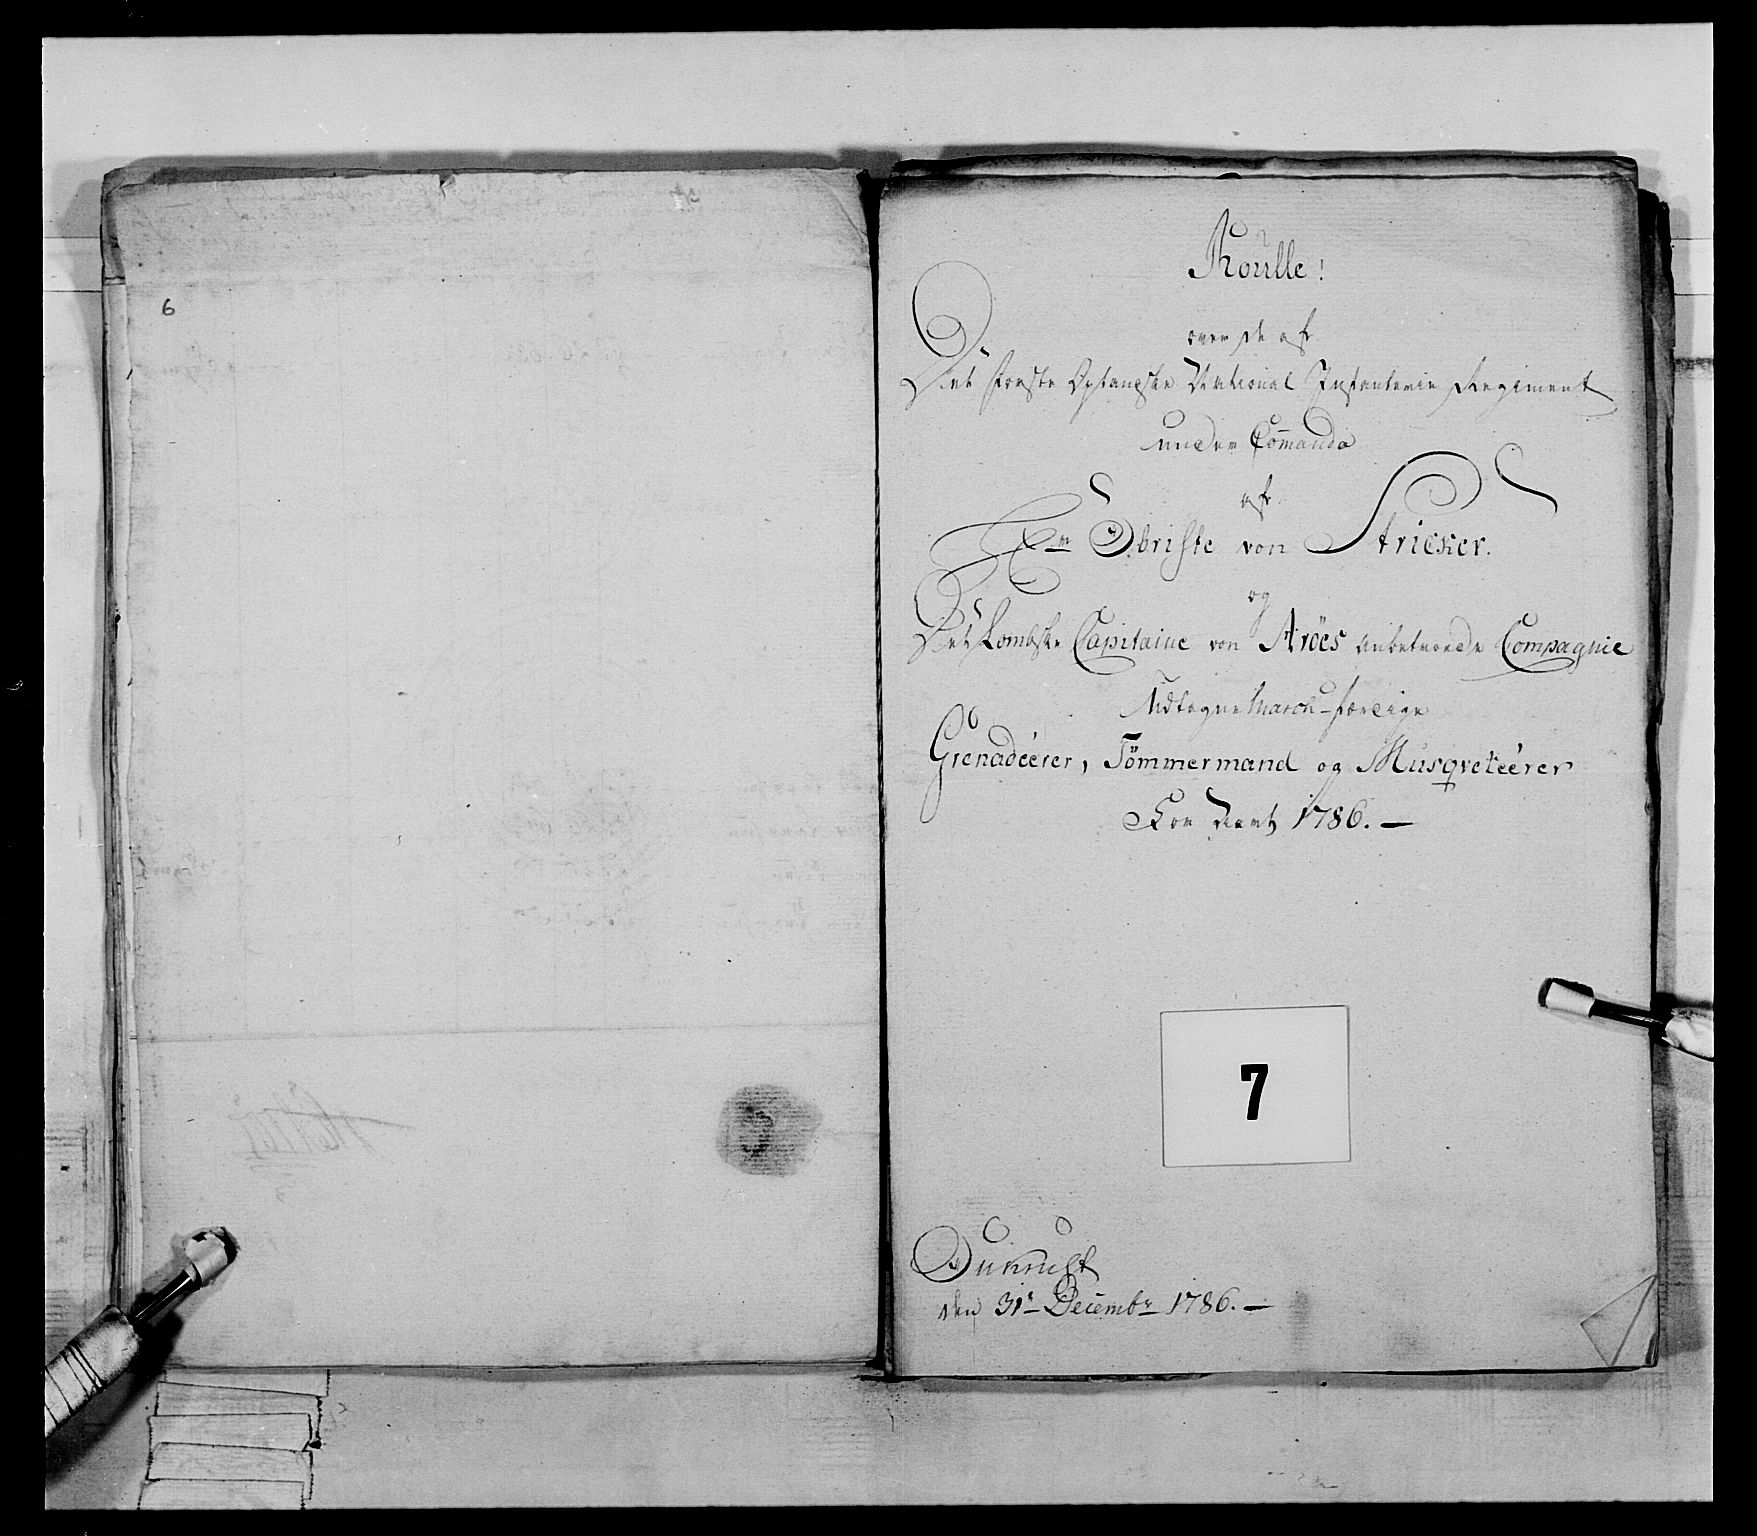 6
Roulle!
over de af
Det første Oplandske National Infanterie Regiment
under Com̄ando
af
Hr Obriste von Stricker.
og
Det Lombske Capitaine von Aröes anbetroede Compagnie
Udtagne March-færdige
Grenadeérer, Tömmermand og Musqveteérer
For Aaret 1786. —
7
den 31te Decembr 1786. —